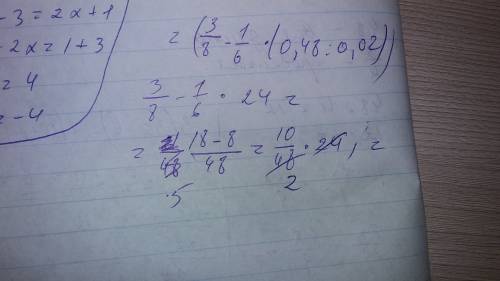 - 3 = 2x + 1
- 2x = 1 + 3
= 4
= -4
= (3/8 - 1/6 · (0,48 : 0,02))
3/8 - 1/6 · 24 =
= 18 - 8/48 = 10/48 · 24, =
5 2